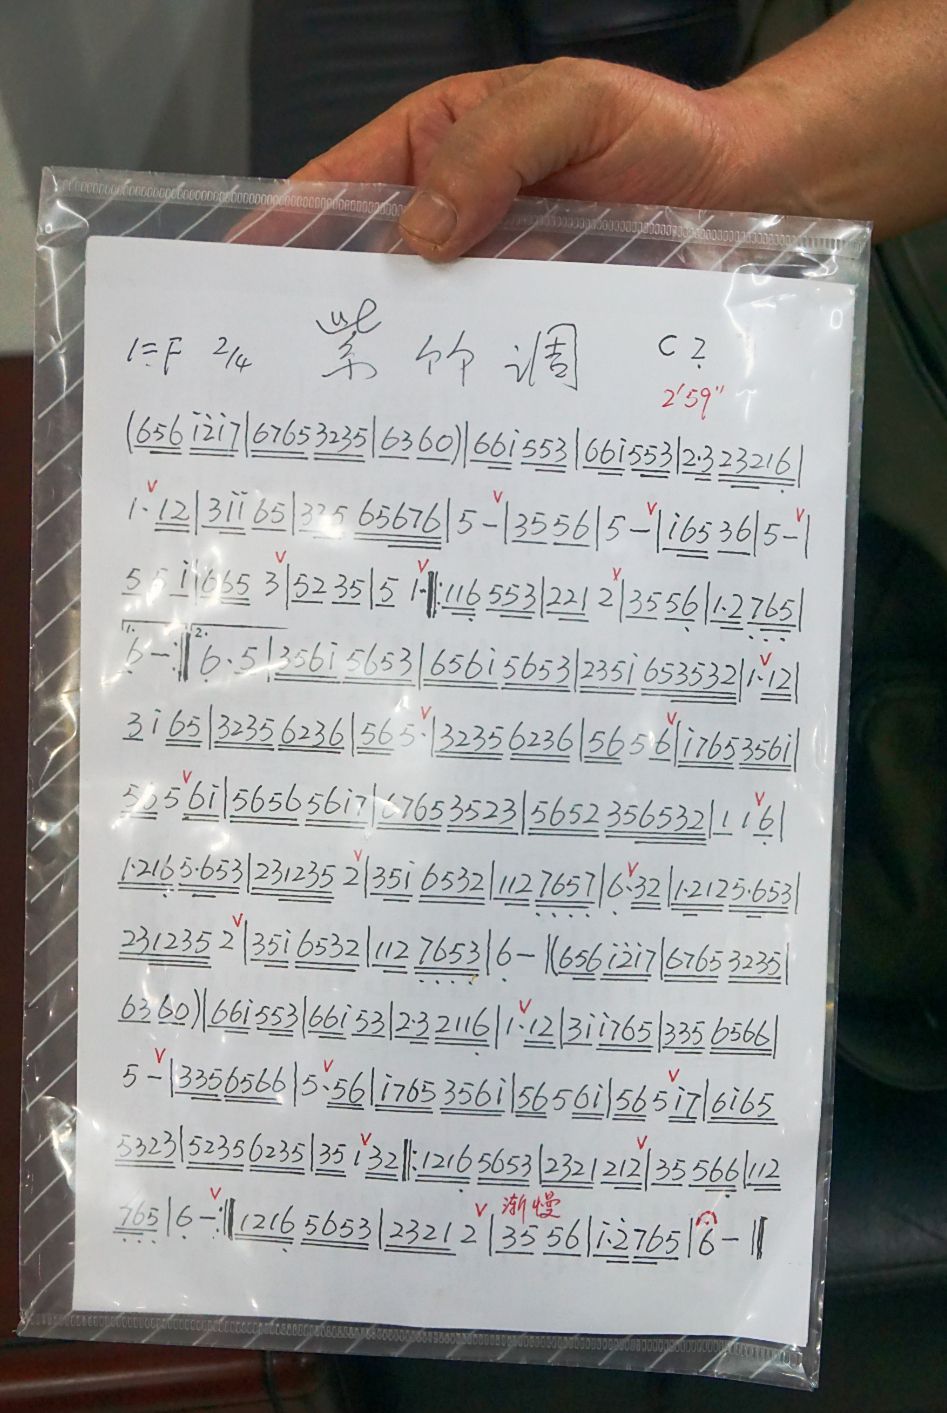 1=F 2/4 紫竹调 C 2
2'59"
(656 i̇2̇i̇7|6765 3235|63 60)|66i̇ 553|66i̇ 553|2·3 23216̣|
1·ᵛ12|3i̇i̇ 65|335 65676|5 -ᵛ|35 56|5 -ᵛ|i̇65 36|5 -ᵛ|
5 5 i̇|665 3ᵛ|52 35|5 1·ᵛ‖:116̣ 553|221 2ᵛ|35 56̣|1·2 7̣6̣5̣|
1. 6̣ - :‖ 2. 6̣·5|356i̇ 5653|656i̇ 5653|235i̇ 653532|1·ᵛ12|
3 i̇ 65|3235 6236|56 5·ᵛ|3235 6236|56 5 6ᵛ|i̇765 356i̇|
56 5ᵛ6i̇|5656 56i̇7|6765 3523|5652 356532|1 1 6̣ᵛ|
1·216̣ 5·653|231235 2ᵛ|35i̇ 6532|112 7̣6̣5̣7̣|6̣·ᵛ32|1·212 5·653|
231235 2ᵛ|35i̇ 6532|112 7̣6̣5̣3̣|6̣ -|(656 i̇2̇i̇7|6765 3235|
63 60)|66i̇ 553|66i̇ 53|2·3 2116̣|1·ᵛ12|3i̇ i̇765|335 6566|
5 -ᵛ|335 6566|5·ᵛ56|i̇765 356i̇|56 56i̇|56 5ᵛi̇7|6i̇65
5323|5235 6235|35 i̇ᵛ32‖:1216̣ 5653|2321 212ᵛ|35 566|112
7̣6̣5̣|6̣ -ᵛ:‖1216̣ 5653|2321 2ᵛ|渐慢 35 56|i̇·2̇ 765|6 -‖